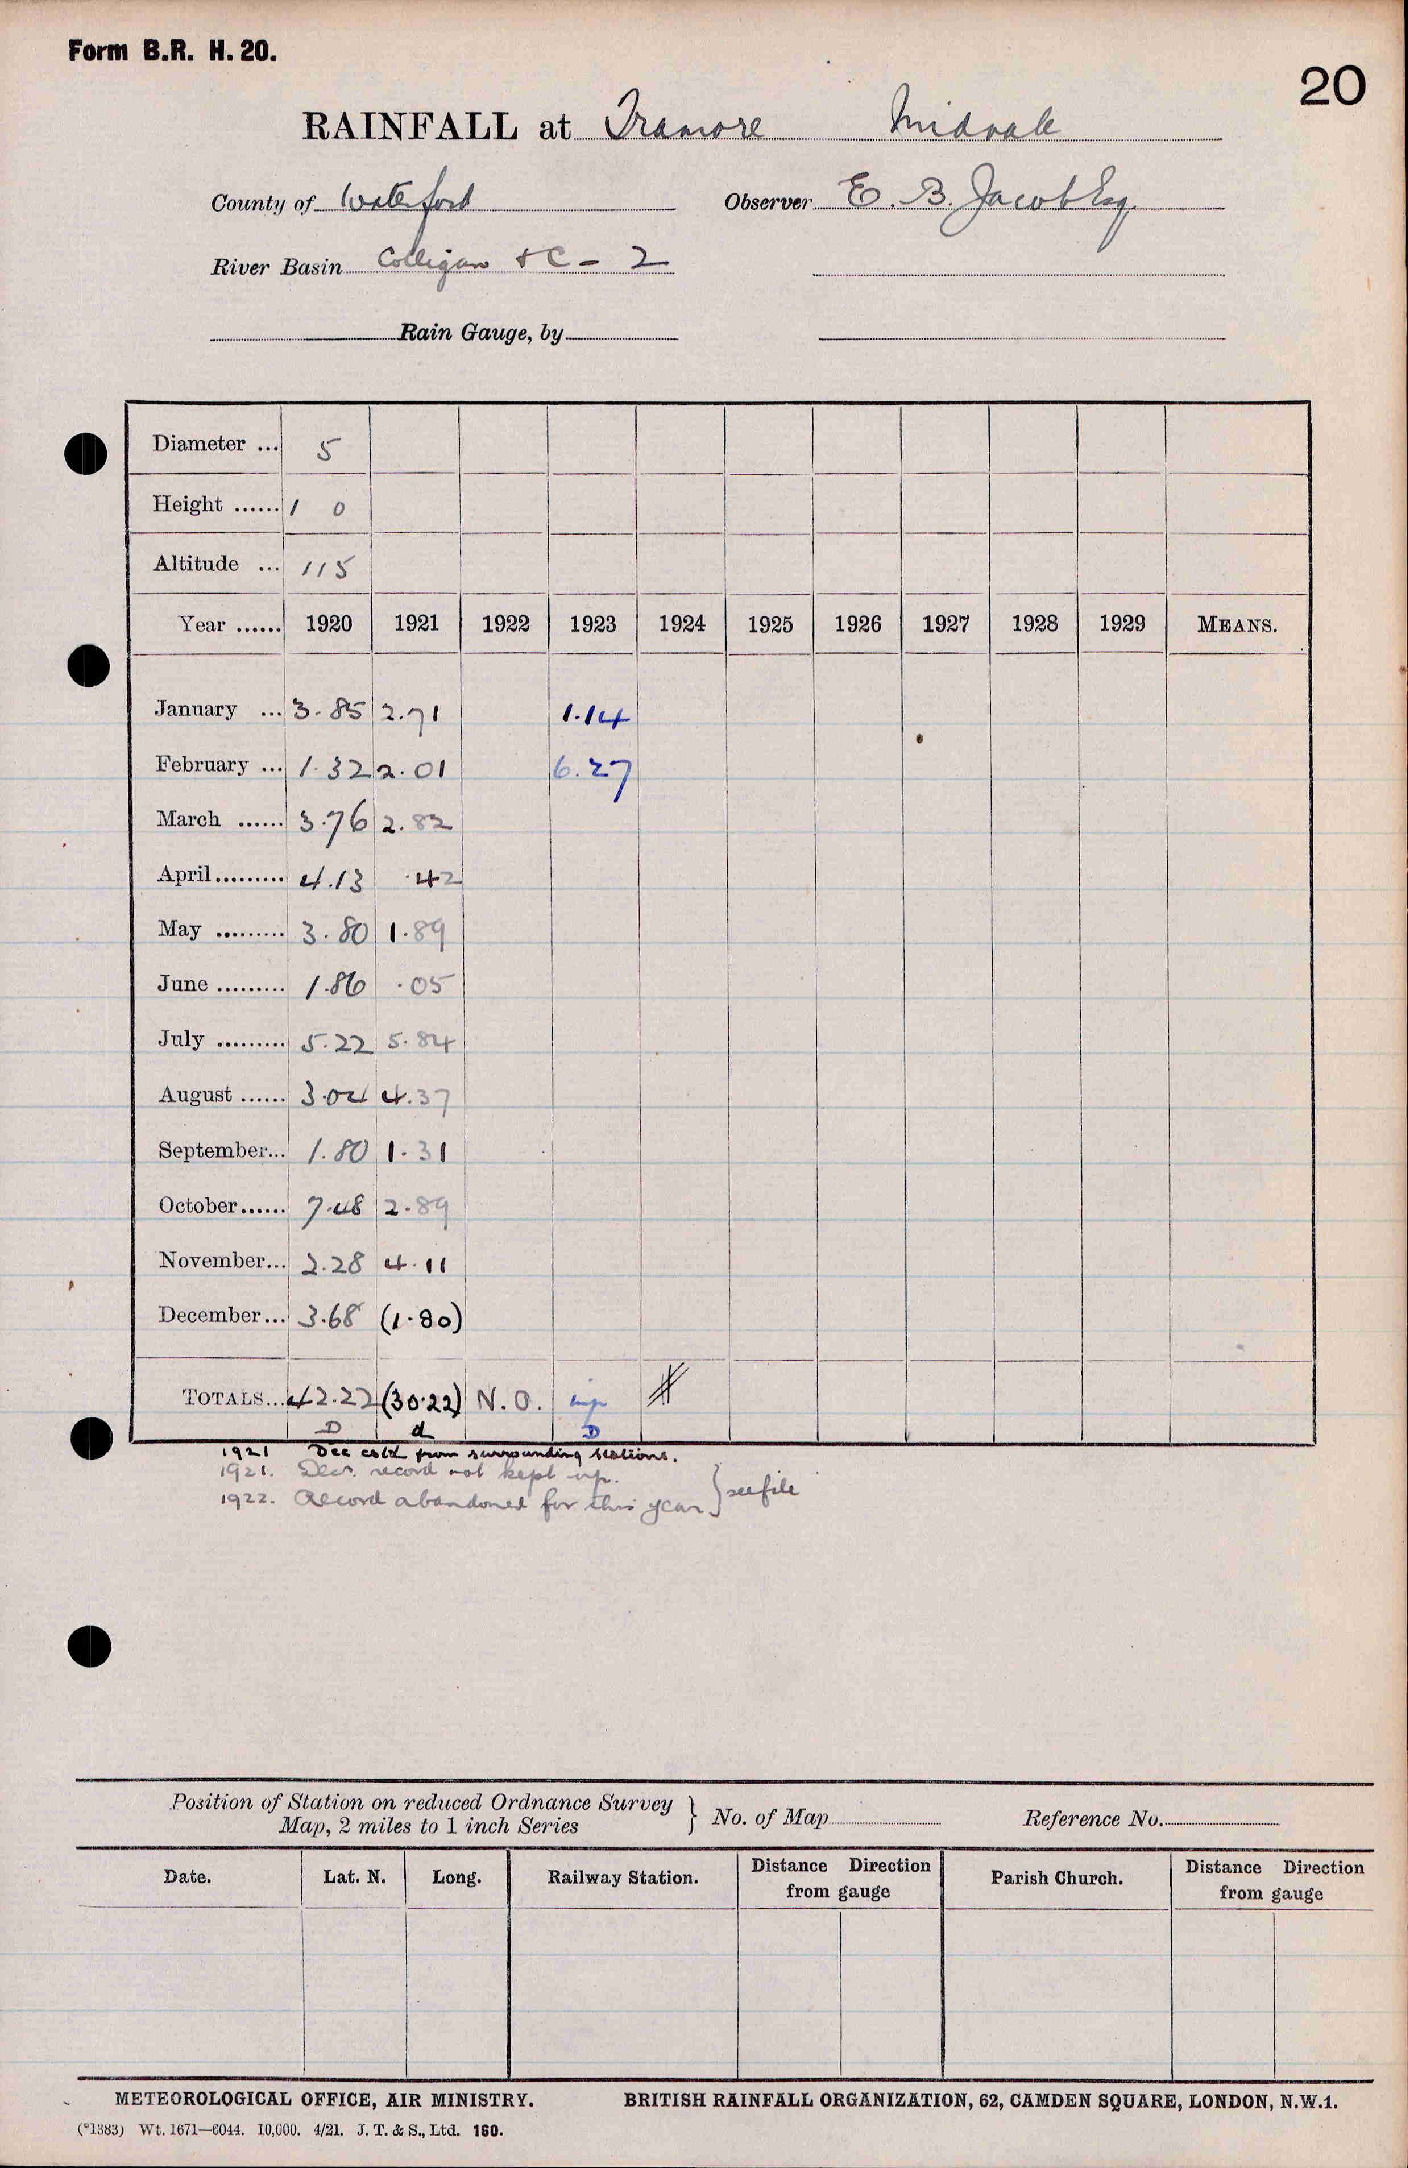 Form B.R. H. 20.
20
RAINFALL at Tramore Midvale
County of Waterford Observer E. B. Jacob Esq.
River Basin Colligan & C - 2
Rain Gauge, by
Diameter ... 5
Height ...... 1 0
Altitude ... 115
Year ...... 1920 1921 1922 1923 1924 1925 1926 1927 1928 1929 MEANS.
January ... 3.85 2.71 1.14
February ... 1.32 2.01 6.27
March ...... 3.76 2.82
April ......... 4.13 .42
May ......... 3.80 1.89
June ......... 1.86 .05
July ......... 5.22 5.84
August ...... 3.04 4.37
September... 1.80 1.31
October...... 7.48 2.89
November... 2.28 4.11
December... 3.68 (1.80)
TOTALS... 42.22 (30.22) N.O. inp
D d D
1921 Dec estd from surrounding stations.
1921. Decr. record not kept up.
1922. Record abandoned for this year } see file
Position of Station on reduced Ordnance Survey
Map, 2 miles to 1 inch Series } No. of Map Reference No.
Date. Lat. N. Long. Railway Station. Distance Direction from gauge Parish Church. Distance Direction from gauge
METEOROLOGICAL OFFICE, AIR MINISTRY. BRITISH RAINFALL ORGANIZATION, 62, CAMDEN SQUARE, LONDON, N.W.1.
(*1383) Wt. 1671—6044. 10,000. 4/21. J. T. & S., Ltd. 160.